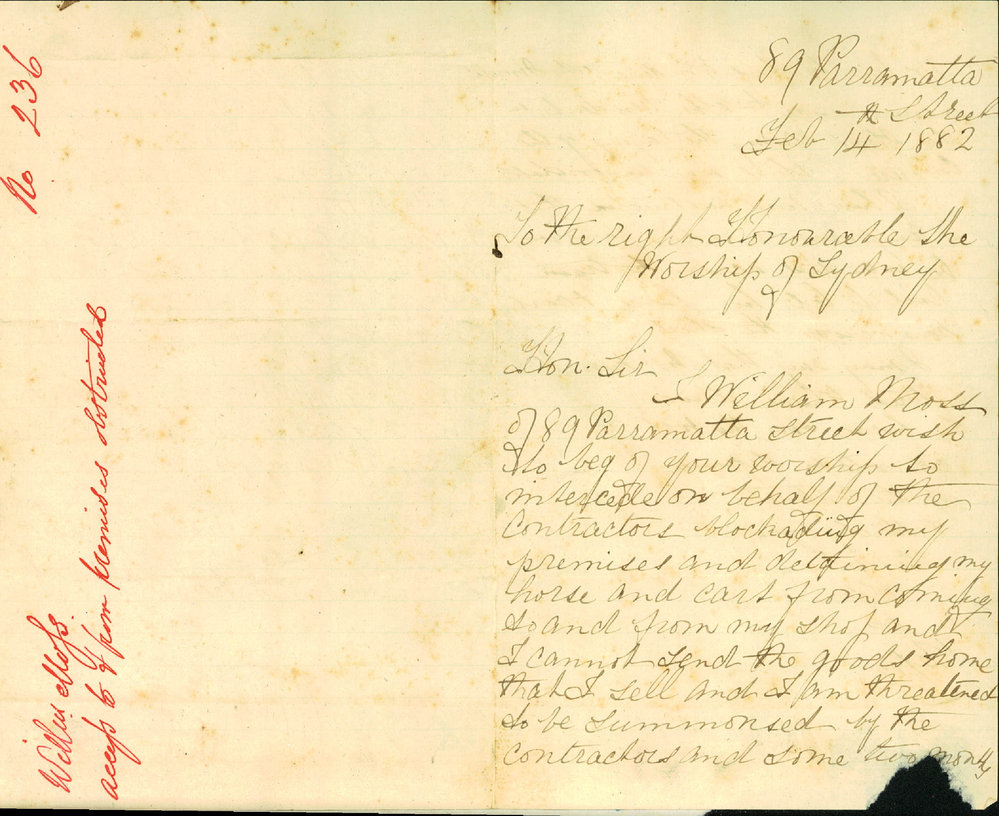 No 236
Willm Moss
access to & from premises obstructed
89 Parramatta
Street
Feb 14th 1882
To the right Honourable the
Worship of Sydney
Hon. Sir
I William Moss
of 89 Parramatta Street wish
to beg of your worship to
intercede on behalf of the
Contractors blockading my
premises and detaining my
horse and cart from coming
to and from my shop and
I cannot send the goods home
that I sell and I am threatened
to be summonsed by the
contractors and some two months